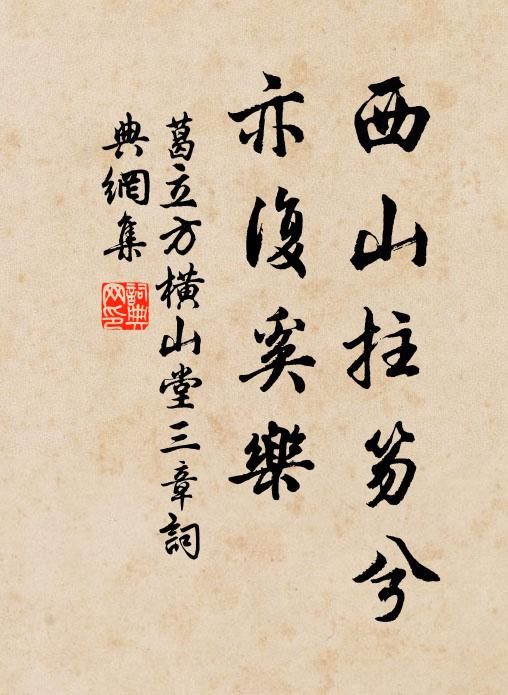 西山拄笏兮
亦復奚樂
葛立方橫山堂三章詞
典網集
詞典網印